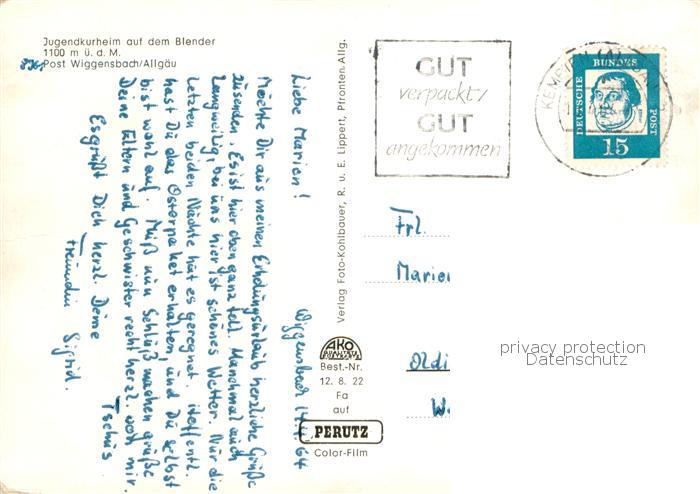 Jugendkurheim auf dem Blender
1100 m ü. d. M.
Post Wiggensbach/Allgäu
Wiggensbach 14.4.64
Liebe Marien!
Möchte Dir aus meinen Erholungsurlaub herzliche Grüße
zusenden. Es ist hier oben ganz toll. Manchmal auch
Langweilig bei uns hier ist schönes Wetter. Nur die
letzten beiden Nächte hat es geregnet. Hoffentl.
hast Du das Osterpaket erhalten, und Du selbst
bist wohl auf. Muß nun Schluß machen grüße
Deine Eltern und Geschwister recht herzl. von mir.
Tschüs
Es grüßt Dich herzl. Deine
Freundin Sigrid.
Verlag Foto-Kohlbauer, R. u. E. Lippert, Pfronten-Allg.
AKO
Best.-Nr.
12. 8. 22
Fa
auf
PERUTZ
Color-Film
GUT
verpackt/
GUT
angekommen
KEMPTEN
DEUTSCHE
BUNDES
POST
15
Frl.
Marien
Oldi
W
privacy protection
Datenschutz